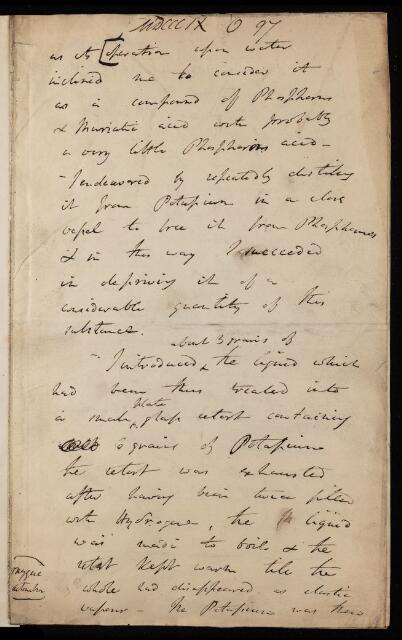 MDCCCIX O 97
as its [operation upon water
inclined me to consider it
as a compound of Phosphorus
& Muriatic acid with probably
a very little Phosphorous acid -
- I endeavored by repeatedly distilling
it from Potassium in a close
vessel to free it from Phosphorus
& in this way I succeeded
in depriving it of a
considerable quantity of this
substance.
about 3 grains of
- I introduced the liquid which
had been thus treated into
plate
a small glass retort containing
6 grains of Potassium
the retort was exhausted
after having been twice filled
with Hydrogene, the liquid
was made to boil & the
retort kept warm till the
whole had disappeared as elastic
vapour - The Potassium was then